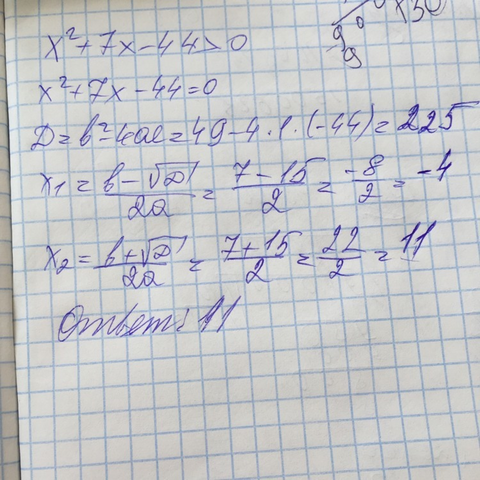 x²+7x-44>0
x²+7x-44=0
D=b²-4ac=49-4·1·(-44)=225
x₁=(b-√D)/2a=(7-15)/2=-8/2=-4
x₂=(b+√D)/2a=(7+15)/2=22/2=11
Ответ: 11